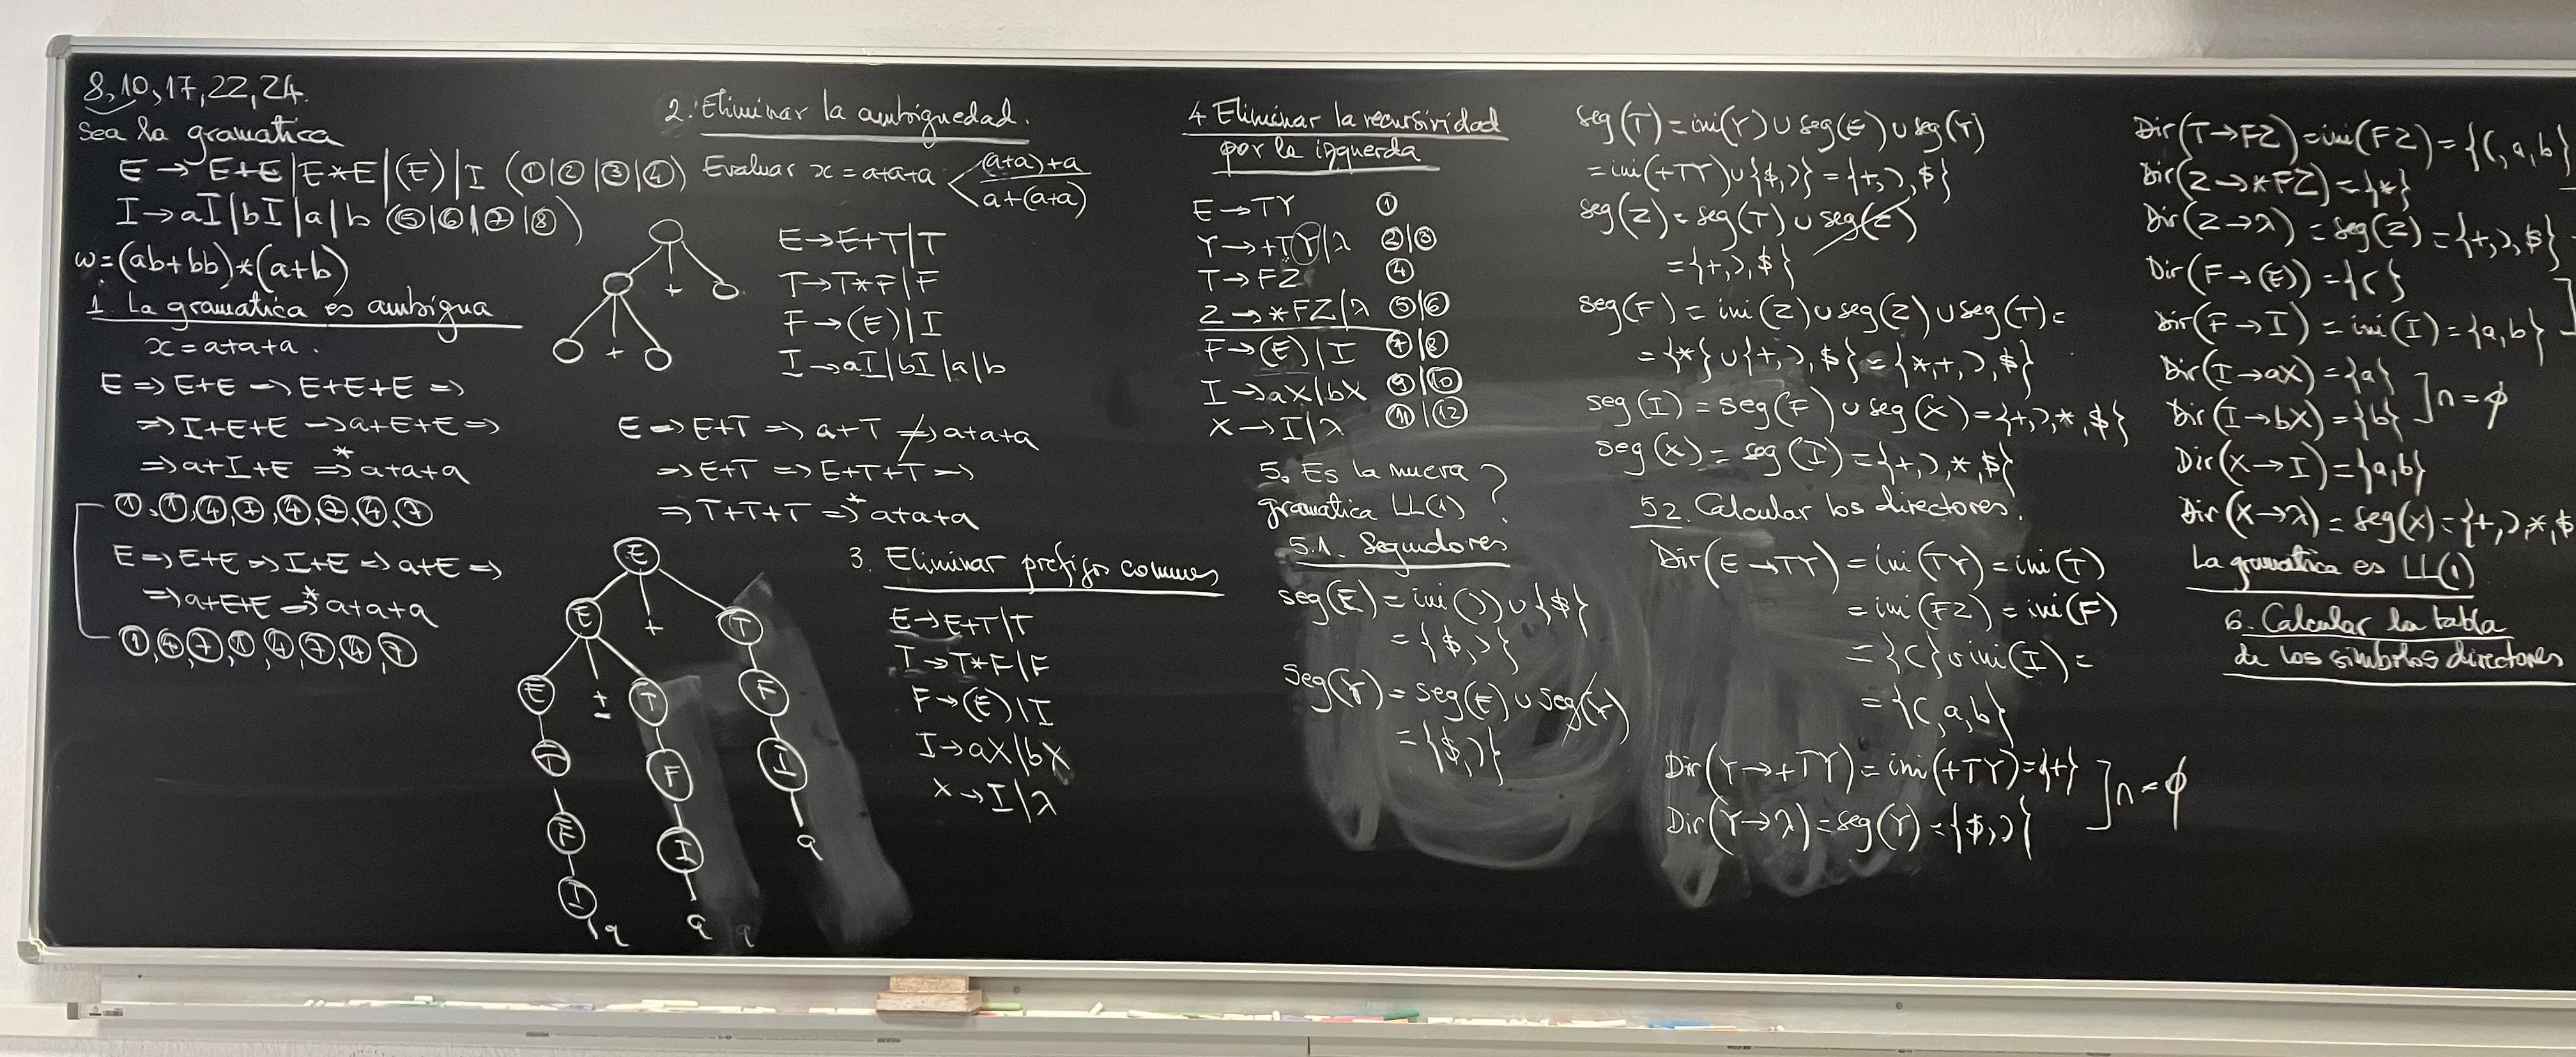 8, 10, 17, 22, 24.
Sea la gramatica
E → E+E | E*E | (E) | I (① | ② | ③ | ④)
I → aI | bI | a | b (⑤ | ⑥ | ⑦ | ⑧)
w = (ab+bb)*(a+b)
1. La gramatica es ambigua
x = a+a+a.
E ⇒ E+E → E+E+E ⇒
⇒ I+E+E → a+E+E ⇒
⇒ a+I+E ⇒* a+a+a
E ⇒ E+E ⇒ I+E ⇒ a+E ⇒
⇒ a+E+E ⇒* a+a+a
①, ④, ⑦, ①, ④, ⑦, ④, ⑦
2. Eliminar la ambiguedad.
Evaluar x = a+a+a < (a+a)+a
a+(a+a)
+
+
E → E+T | T
T → T*F | F
F → (E) | I
I → aI | bI | a | b
E ⇒ E+T ⇒ a+T ⇏ a+a+a
⇒ E+T ⇒ E+T+T ⇒
⇒ T+T+T ⇒* a+a+a
E
E + T
E + T F
T F I
F I a
I a a
a
3. Eliminar prefijos comunes
E → E+T | T
T → T*F | F
F → (E) | I
I → aX | bX
X → I | λ
4 Eliminar la recursividad
por la izquerda
E → TY ①
Y → +TY | λ ② | ③
T → FZ ④
Z → *FZ | λ ⑤ | ⑥
F → (E) | I ⑦ | ⑧
I → aX | bX ⑨ | ⑩
X → I | λ ⑪ | ⑫
5. Es la nueva
gramatica LL(1) ?
5.1. Seguidores
seg(E) = ini()) ∪ {$}
= {$, )}
seg(Y) = seg(E) ∪ seg(Y)
= {$, )}
seg(T) = ini(Y) ∪ seg(E) ∪ seg(Y)
= ini(+TY) ∪ {$, )} = {+, ), $}
seg(Z) = seg(T) ∪ seg(Z)
= {+, ), $}
seg(F) = ini(Z) ∪ seg(Z) ∪ seg(T) =
= {*} ∪ {+, ), $} = {*, +, ), $}
seg(I) = seg(F) ∪ seg(X) = {+, ), *, $}
seg(X) = seg(I) = {+, ), *, $}
5.2. Calcular los directores.
Dir(E → TY) = ini(TY) = ini(T)
= ini(FZ) = ini(F)
= {(} ∪ ini(I) =
= {(, a, b}
Dir(Y → +TY) = ini(+TY) = {+}
Dir(Y → λ) = seg(Y) = {$, )} ] ∩ = ϕ
Dir(T → FZ) = ini(FZ) = {(, a, b}
Dir(Z → *FZ) = {*}
Dir(Z → λ) = seg(Z) = {+, ), $}
Dir(F → (E)) = {(}
Dir(F → I) = ini(I) = {a, b}
Dir(I → aX) = {a}
Dir(I → bX) = {b} ] ∩ = ϕ
Dir(X → I) = {a, b}
Dir(X → λ) = seg(X) = {+, ), *, $
La gramatica es LL(1)
6. Calcular la tabla
de los simbolos directores